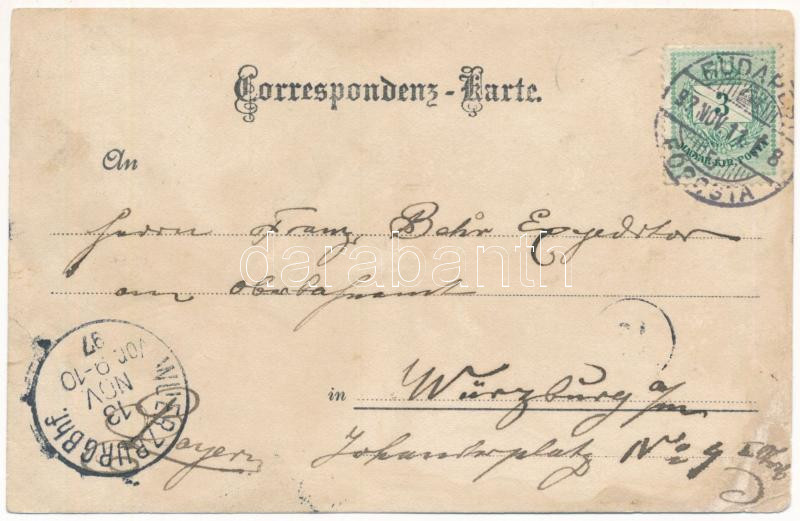 Correspondenz-Karte.
BUDAPEST
97 NOV. 8
FŐPOSTA
3
MAGYAR KIR. POSTA
An
Herrn Franz Behr Expeditor
am Oberbahnamt
darabanth
in Würzburg a/m
Johanniterplatz No 9
Bayern
WUERZBURG Bhf.
13
NOV
Vor. 9-10
97